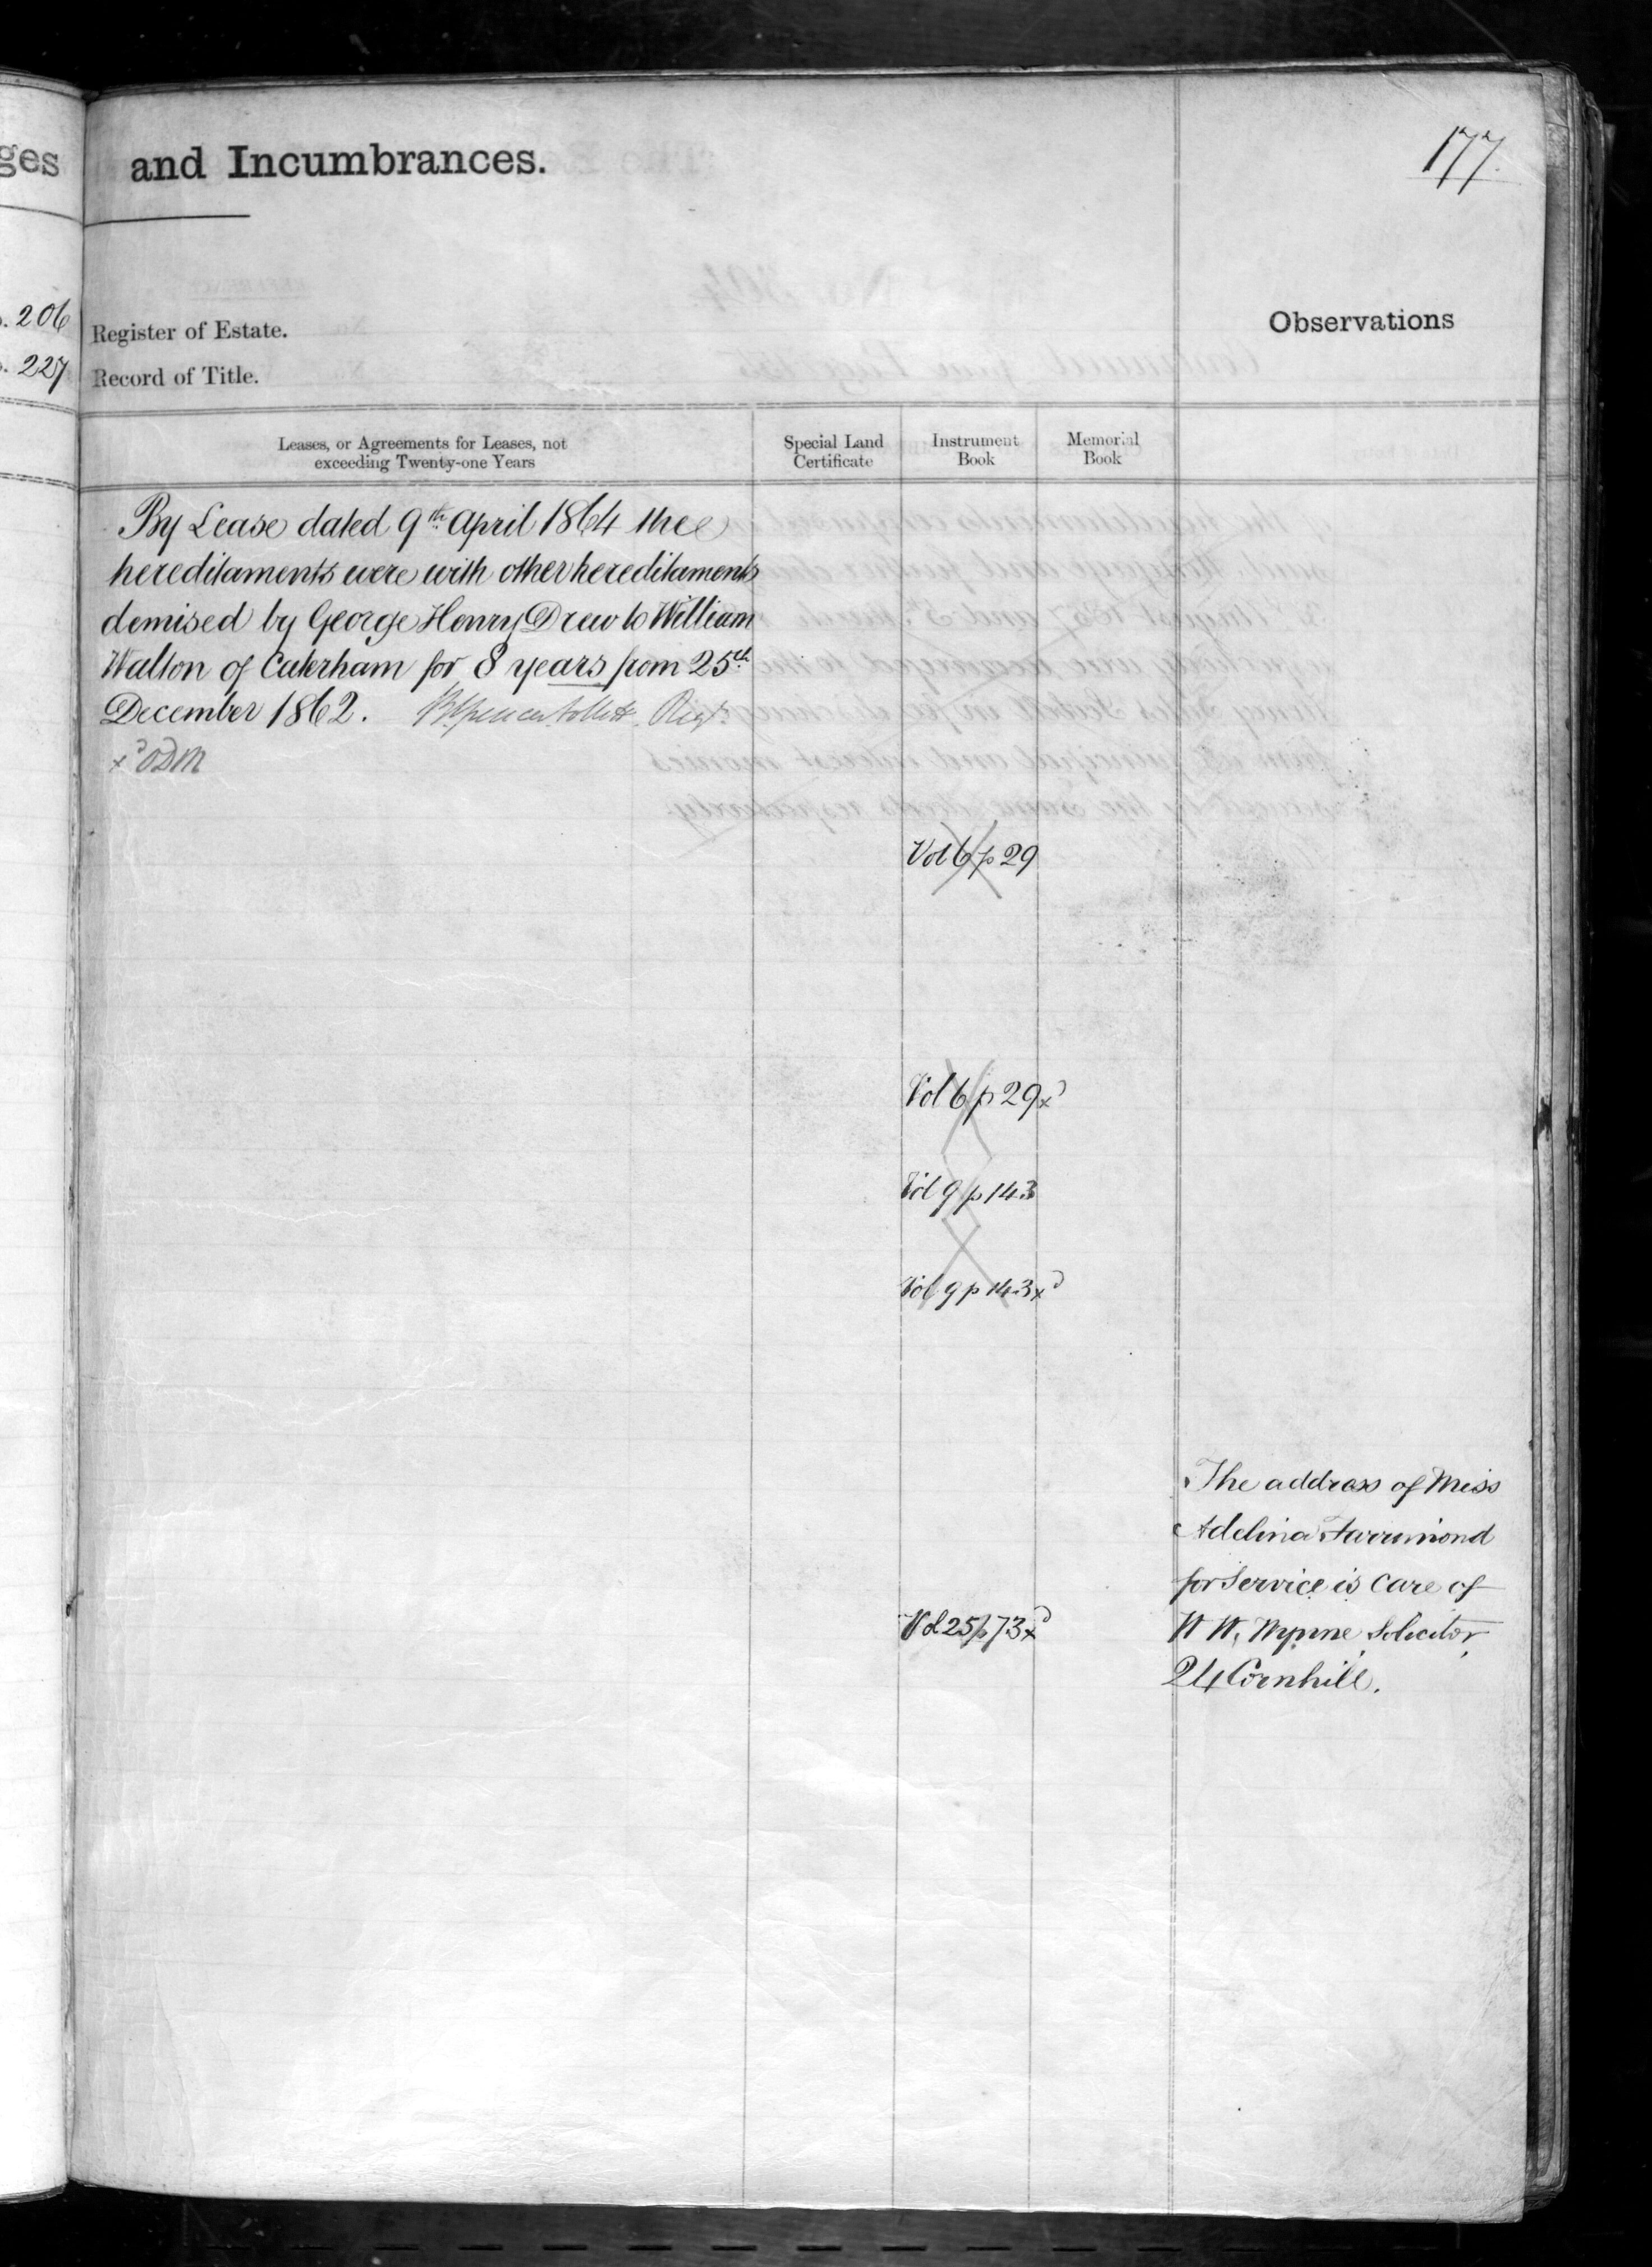 ges
and Incumbrances.
177.
206
Register of Estate.
Observations
227
Record of Title.
Leases, or Agreements for Leases, not
exceeding Twenty-one Years
Special Land
Certificate
Instrument
Book
Memorial
Book
By Lease dated 9th April 1864 the
hereditaments were with other hereditaments
demised by George Henry Drew to William
Walton of Caterham for 8 years from 25th
December 1862. Regr.
Vol 6 p 29
Vol 6 p 29 xd
Vol 9 p 143
Vol 9 p 143 xd
The address of Miss
Adelina Farrimond
for Service is Care of
W W. Wynne Solicitor,
24 Cornhill.
Vol 25 p 73 xd